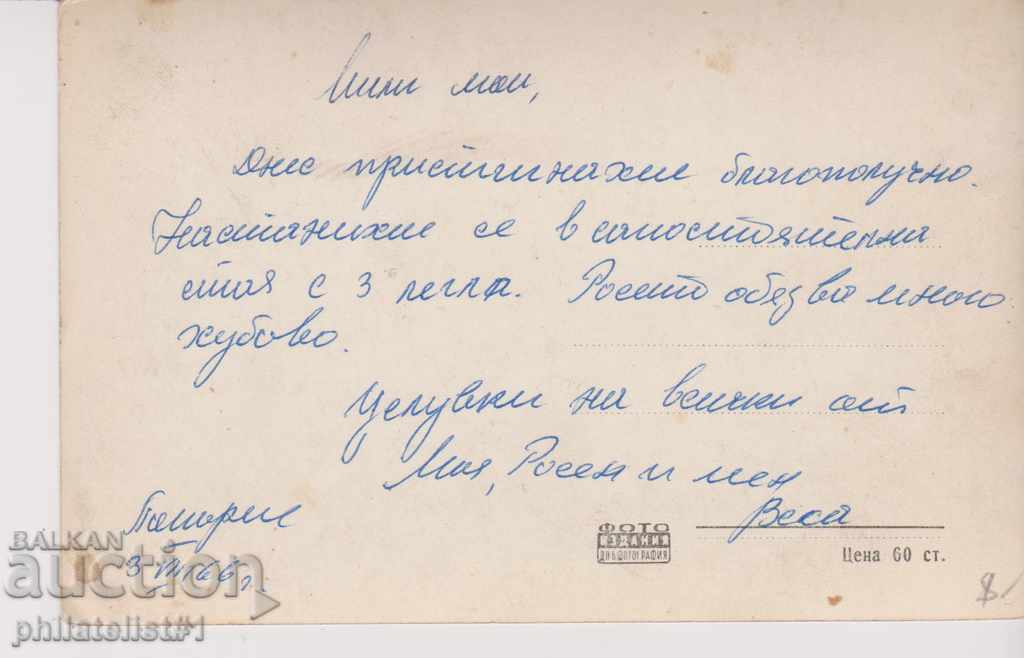 Мили мои,
Днес пристигнахме благополучно.
Настанихме се в самостоятелна
стая с 3 легла. Росето обядва много
хубово.
Целувки на всички от
Мая, Росен и мен
Веса
3 VIII 66 г.
ФОТО
ИЗДАНИЕ
ДПК ФОТОГРАФИЯ
Цена 60 ст.
BALKAN
auction
philatelist#1